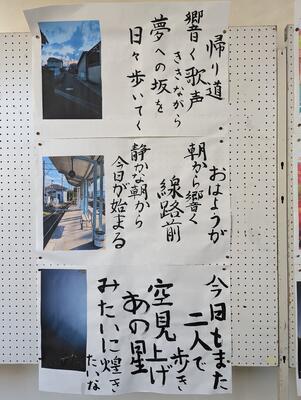 帰り道
響く歌声
ききながら
夢への坂を
日々歩いてく
おはようが
朝から響く
線路前
静かな朝から
今日が始まる
今日もまた
二人で歩き
空見上げ
あの星
みたいに煌き
たいな